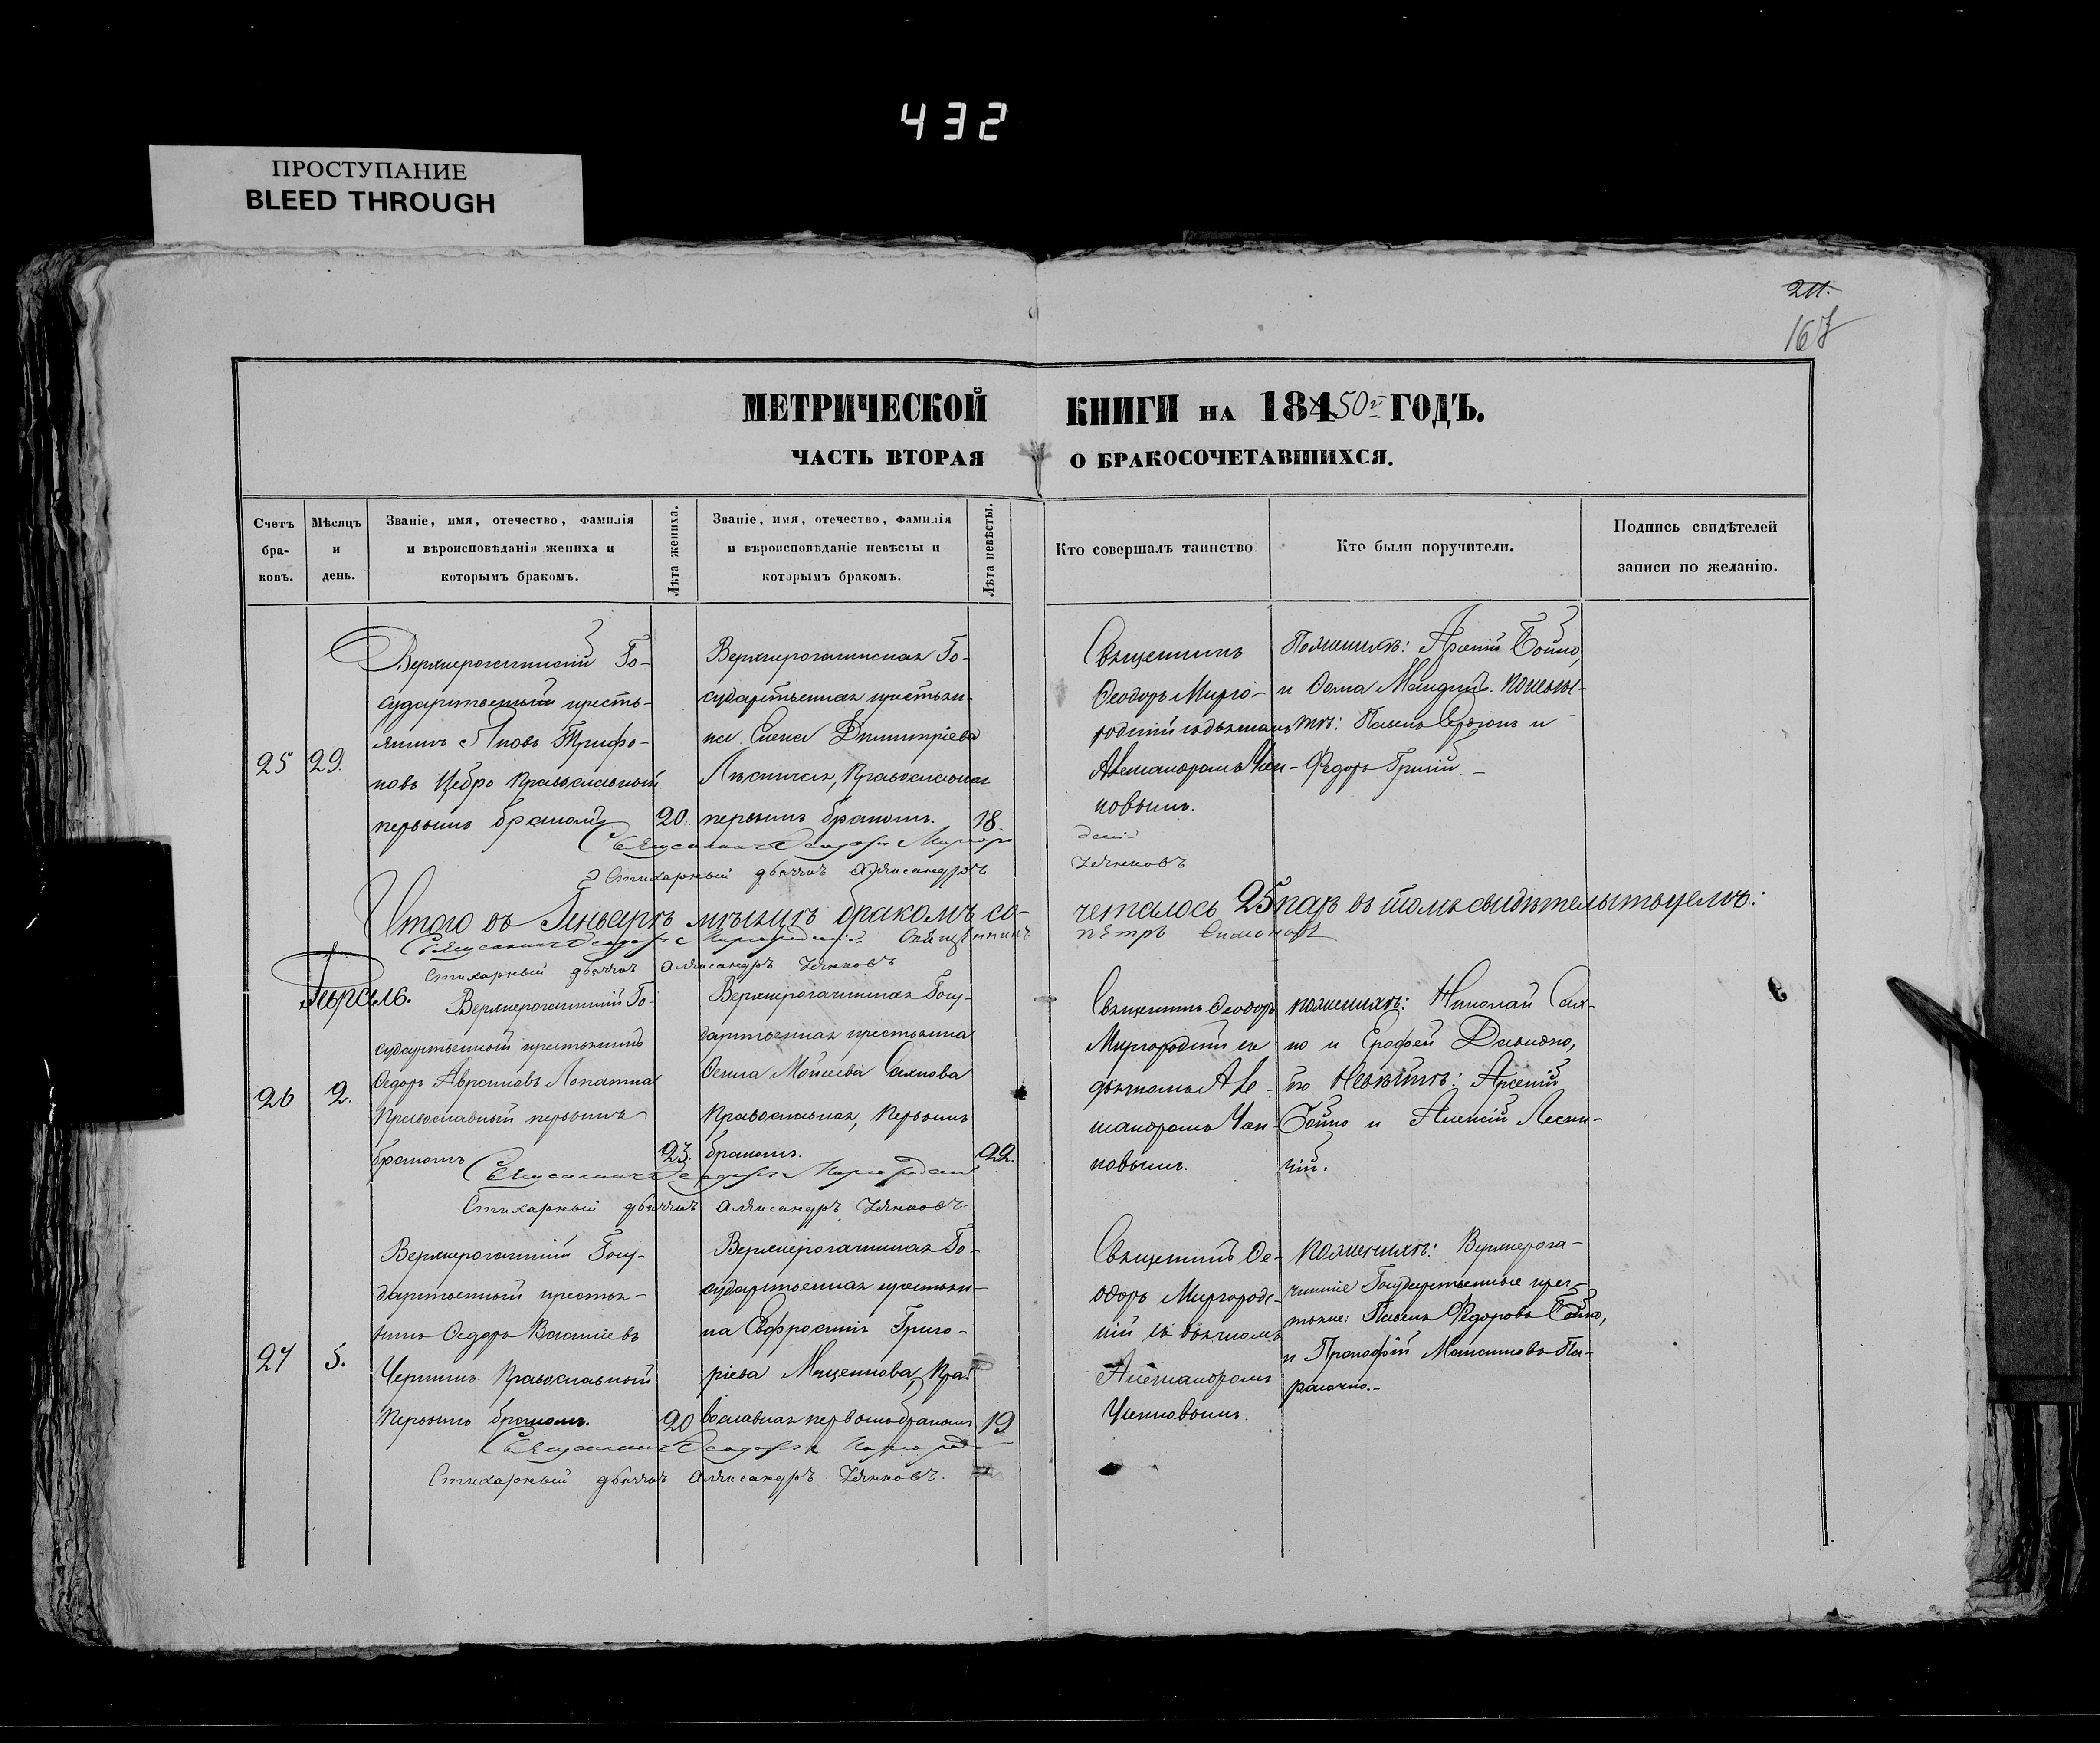 432
ПРОСТУПАНИЕ
BLEED THROUGH
211.
167
МЕТРИЧЕСКОЙ КНИГИ НА 184 50 г ГОДЪ.
ЧАСТЬ ВТОРАЯ О БРАКОСОЧЕТАВШИХСЯ.
Счетъ
бра-
ковъ.
Мѣсяцъ
и
день.
Званіе, имя, отечество, фамилія
и вѣроисповѣданія жениха и
которымъ бракомъ.
Лѣта жениха.
Званіе, имя, отечество, фамилія
и вѣроисповѣданіе невѣсты и
которымъ бракомъ.
Лѣта невѣсты.
Кто совершалъ таинство.
Кто были поручители.
Подпись свидѣтелей
записи по желанію.
25
29.
Верхнерогачинскій Го-
сударственный кресть-
янинъ Яковъ Трифо-
новъ Цебро Православный
первымъ бракомъ
20.
Верхнерогачинская Го-
сударственная крестьян-
ка Елена Димитріева
Православная
первымъ бракомъ.
18.
Священникъ
Ѳеодоръ Мирго-
родскій съ дьячкомъ
Александромъ Чен-
ковымъ.
По женихѣ: Арсеній Бойко,
и Ѳома по невѣс-
тѣ: Павелъ и
Ѳедоръ
Священникъ Ѳеодоръ Миргоро
Стихарный дьячокъ Александръ
Итого въ Генварѣ мѣсяцѣ бракомъ со-
четалось 25 паръ въ томъ свидѣтельствуемъ:
Священникъ Ѳеодоръ Миргородскій Священникъ
Петръ
Стихарный дьячокъ Александръ Ченковъ
Февраль.
26
2.
Верхнерогачинскій Го-
сударственный крестьянинъ
Ѳедоръ Аврамовъ Лопатка
Православный первымъ
бракомъ
23.
Верхнерогачинская Госу-
дарственная крестьянка
Моисеева Сахнова
Православная, Первымъ
бракомъ.
22.
Священникъ Ѳеодоръ
Миргородскій съ
дьячкомъ Але-
ксандромъ Чен-
ковымъ.
по женихѣ: Николай Сах-
но и Ерофей
по невѣстѣ: Арсеній
Бойко и Алексій Лесни-
чій.
Священникъ Ѳеодоръ Миргородскій
Стихарный дьячокъ Александръ Ченковъ
27
5.
Верхнерогачинскій Госу-
дарственный крестья-
нинъ Ѳедоръ
Православный
Первымъ бракомъ.
20
Верхнерогачинская Го-
сударственная крестьян-
ка Евфросинія Григо-
ріева Мищенкова, Пра-
вославная первымъ бракомъ
19
Священникъ Ѳе-
одоръ Миргородс-
кій съ дьячкомъ
Александромъ
Ченковымъ.
по женихѣ: Верхнерога-
чинскіе Государственные крес-
тьяне: Павелъ Ѳедоровъ Бойко,
и Прокофій
Священникъ Ѳеодоръ Миргород
Стихарный дьячокъ Александръ Ченковъ.